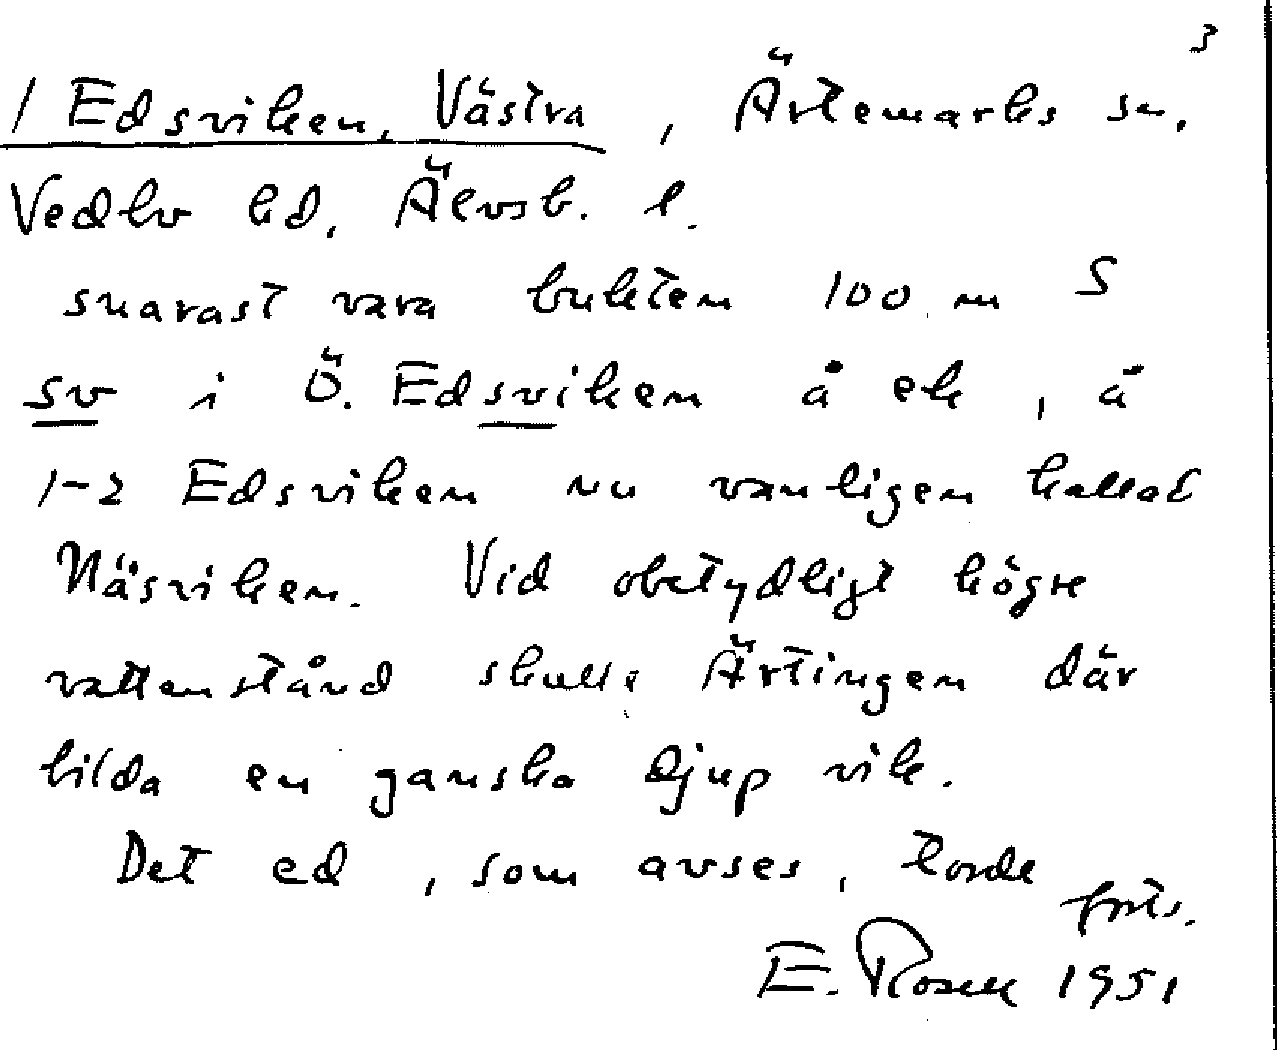 3
1 Edsviken, Västra, Ärtemarks sn,
Vedbo hd, Älvsb. l.
snarast vara bukten 100 m S
sv i Ö. Edsviken å ek, å
1-2 Edsviken nu vanligen kallat
Näsviken. Vid obetydligt högre
vattenstånd skulle Ärtingen där
bilda en ganska djup vik.
Det ed, som avses, torde
forts.
E. Rosell 1951